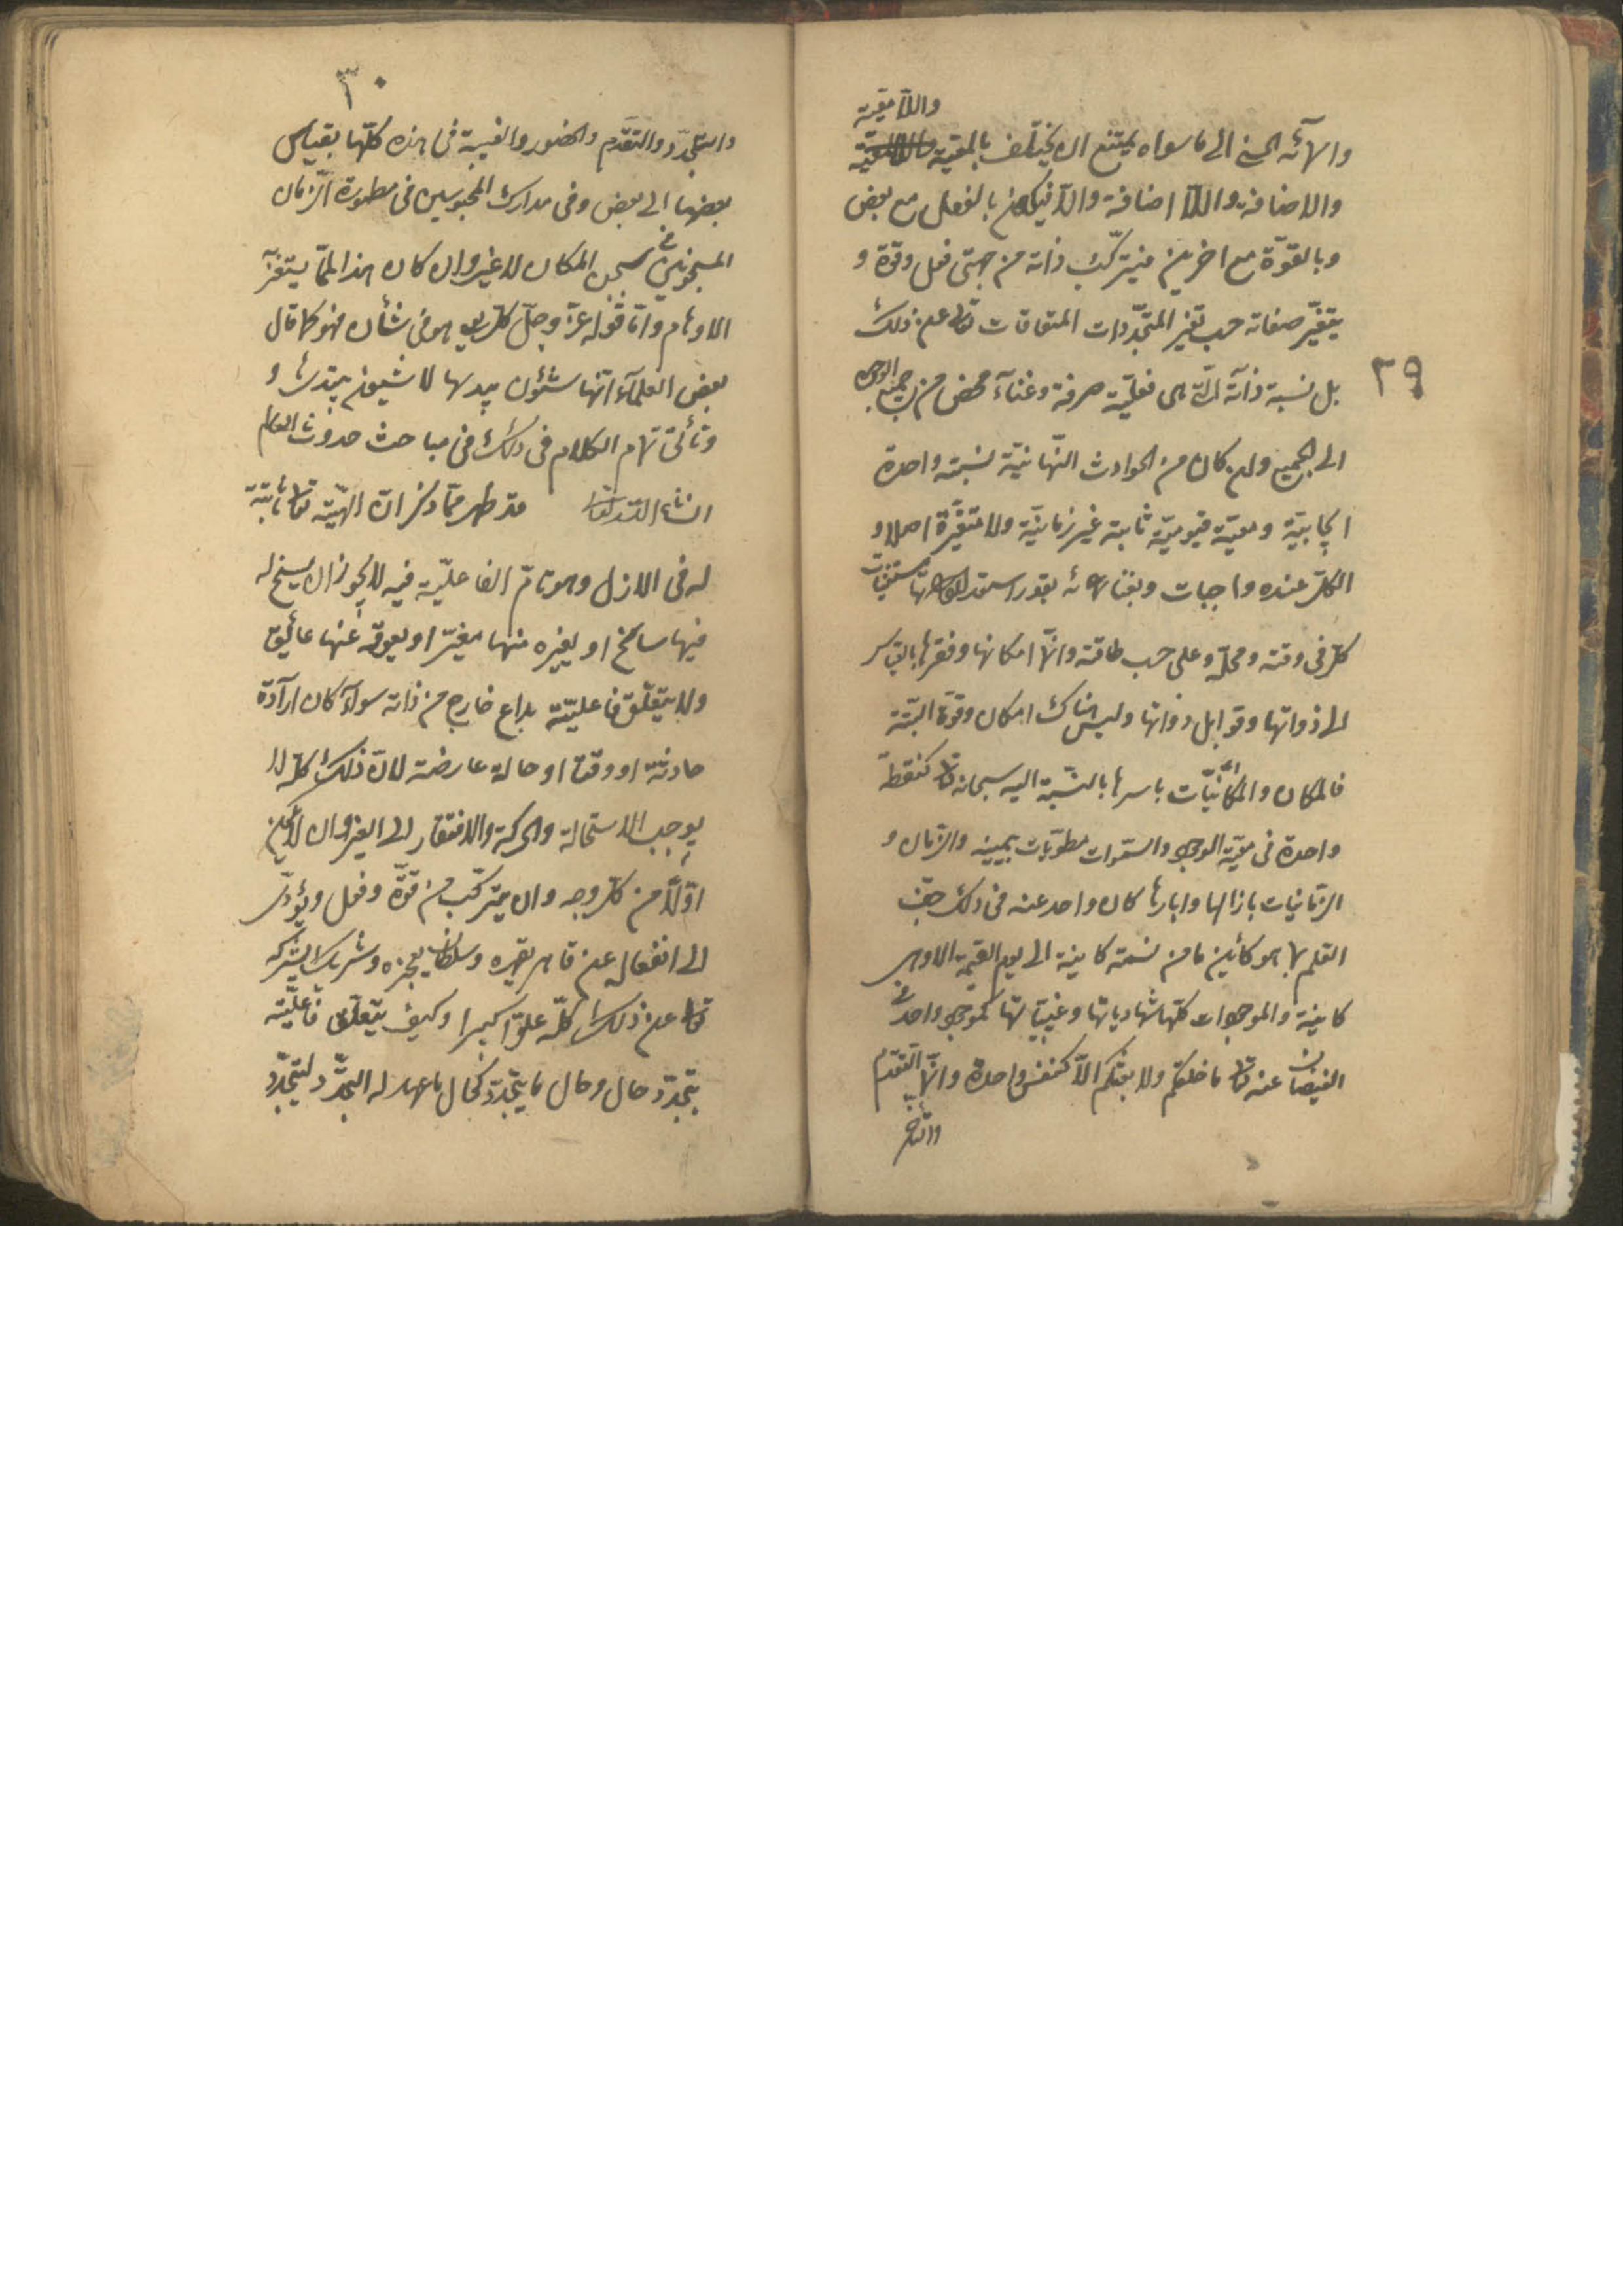 واللّا معيّة
وا سمآئه الحسنى الى ما سواه يمتنع ان يختلف بالمعيّة
والاضافة واللّا اضافة والّا فيكون بالفعل مع بعض
وبالقوّة مع اخرين فيتركّب ذاته من جهتى فعل وقوّة و
يتغيّر صفاته حسب تغيّر المتجدّدات المتعاقبات تعالى عن ذلك
٢٩
بل نسبة ذاته الّتى هى فعليّة صرفة وغنآء محض من جميع الوجوه
الى الجميع وان كان من الحوادث الزّمانيّة نسبة واحدة
ايجابيّة ومعيّة قيوميّة ثابتة غير زمانيّة ولا متغيّرة اصلا و
الكلّ عنده واجبات وبغنائه بقدر استعداداتها مستغنيات
كلّ فى وقته ومحلّه وعلى حسب طاقته وانّما امكانها وفقرها بالقياس
الى ذواتها وقوابل ذواتها وليس هناك امكان وقوّة البتّة
فالمكان والمكانيّات باسرها بالنّسبة اليه سبحانه تعالى كنقطة
واحدة فى معيّة الوجود والسّموات مطويّات بيمينه والزّمان و
الزّمانيات بازالها وابادها كان واحد عنده فى ذلك جفّ
القلم بما هو كائين ما من نسمة كاينة الى يوم القيمة الا وهى
كاينة والموجودات كلّها شهادياتها وغيبيّاتها كموجود واحد فى
الفيضان عنه تعالى ما خلقكم ولا بعثكم الّا كنفس واحدة وانّما التّقدّم
والتّأخّر
٣٠
والتجدّد والتقدّم والحضور والغيبة فى هذه كلّها بقياس
بعضها الى بعض وفى مدارك المحبوسين فى مطمورة الزّمان
المسجونين فى سجن المكان لا غير وان كان هذا لممّا يستغربه
الاوهام وامّا قوله عزّ وجلّ كلّ يوم هو فى شأن فهو كما قال
بعض العلمآء انّها شئون يبديها لا شئون يبتديها و
وتأتى تمام الكلام فى ذلك فى مباحث حدوث العالم
انشاء اللّه تعالى قد ظهر ممّا ذكر انّ الهيّته تعالى ثابتة
له فى الازل وهو تامّ الفاعليّة فيه لا يجوز ان يسنح له
فيها سانح او يغيره منها مغيّر او يعوقه عنها عائيق
ولا يتعلّق فاعليّته بداع خارج من ذاته سوآء كان ارآدة
حادثة او وقتا او حالة عارضة لانّ ذلك كلّه لا
يوجب الاستحالة والحركة والافتقار الى الغير وان لا يكون
اوّلا من كلّ وجه وان يتركّب من قوّة وفعل ويؤدّى
الى انفعال عن قاهر يقهره وسلطان يعجزه وشريك يشركه
تعالى عن ذلك كلّه علوّا كبيرا وكيف يتعلّق فاعليّته
بتجدّد حال وحال ما يتجدّد كحال ما مهّد له التّجدّد ليتجدّد